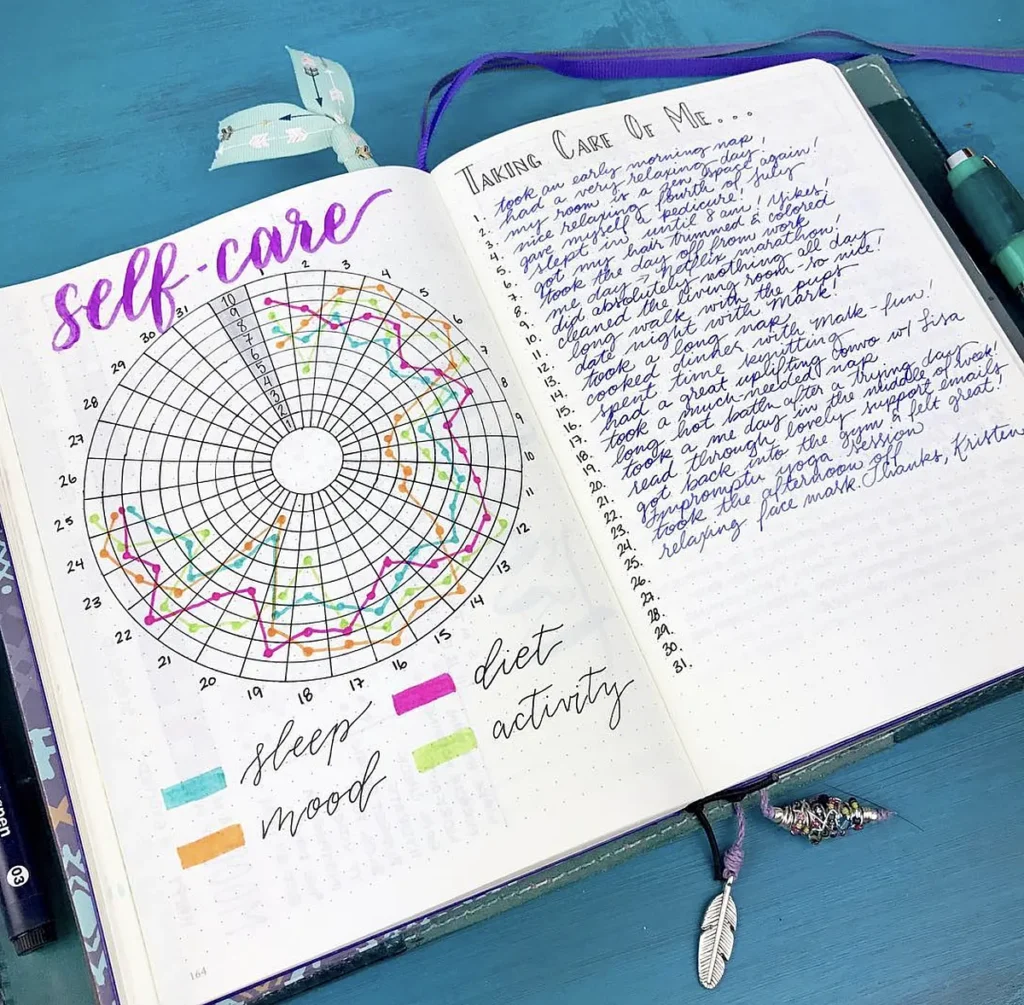 self-care
1
2
3
4
5
6
7
8
9
10
11
12
13
14
15
16
17
18
19
20
21
22
23
24
25
26
27
28
29
30
31
10
9
8
7
6
5
4
3
2
1
sleep
diet
mood
activity
164
TAKING CARE OF ME...
1. took an early morning nap!
2. had a very relaxing day!
3. my room is a zen space again!
4. nice relaxing fourth of July
5. gave myself a pedicure!
6. slept in until 8am! Yikes!
7. got my hair trimmed & colored
8. took the day off from work
9. me day - Netflix marathon!
10. did absolutely nothing all day
11. cleaned the living room - so nice!
12. long walk with the pups
13. date night with Mark!
14. took a long nap
15. cooked dinner with Mark - fun!
16. spent time knitting
17. had a great uplifting convo w/ Lisa
18. took a much-needed nap
19. long hot bath after a trying day
20. took a me day in the middle of week!
21. read through lovely support emails
22. got back into the gym & felt great!
23. Impromptu yoga session
24. took the afternoon off
25. relaxing face mask. Thanks, Kristen
26.
27.
28.
29.
30.
31.
03